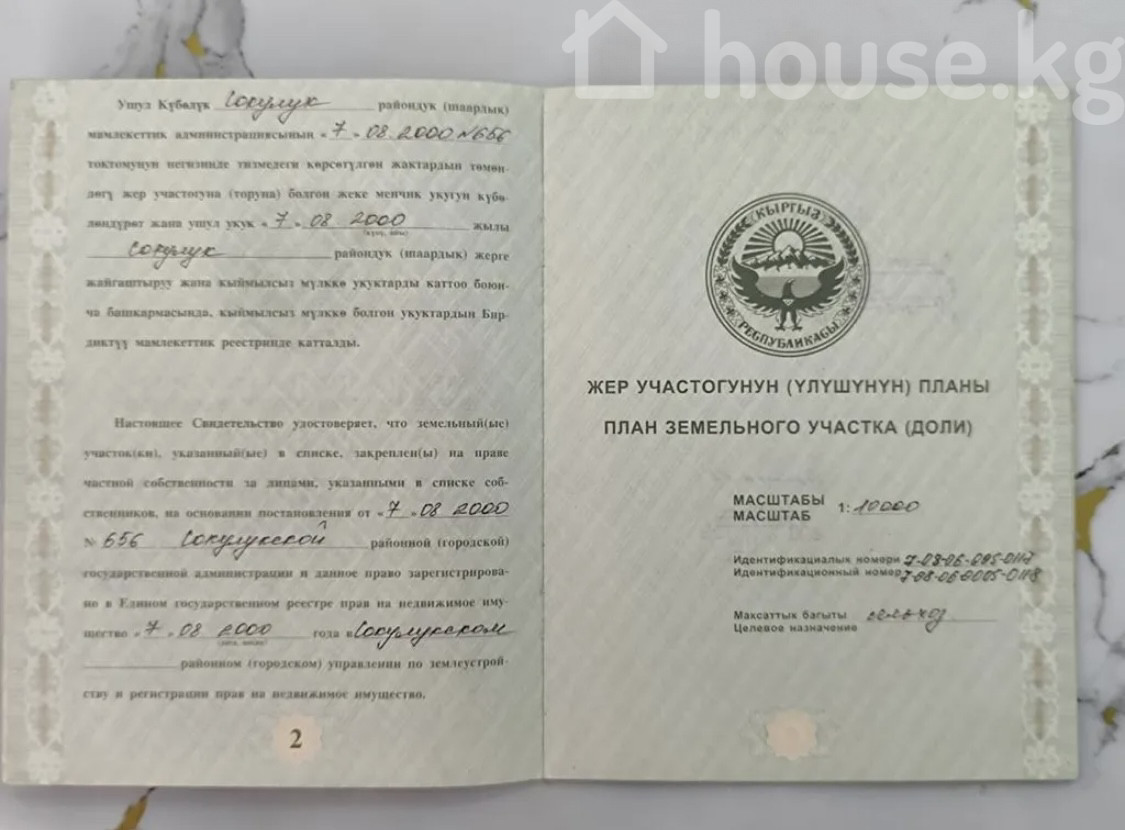 house.kg
Ушул Күбөлүк Сокулук райондук (шаардык)
мамлекеттик администрациясынын «7» 08 2000 №656
токтомунун негизинде тизмедеги көрсөтүлгөн жактардын төмөн-
дөгү жер участогуна (торуна) болгон жеке менчик укугун күбө-
лөндүрөт жана ушул укук «7» 08 2000 жылы
Сокулук райондук (шаардык) жерге
жайгаштыруу жана кыймылсыз мүлккө укуктарды каттоо боюн-
ча башкармасында, кыймылсыз мүлккө болгон укуктардын Бир-
диктүү мамлекеттик реестринде катталды.
Настоящее Свидетельство удостоверяет, что земельный(ые)
участок(ки), указанный(ые) в списке, закреплен(ы) на праве
частной собственности за лицами, указанными в списке соб-
ственников, на основании постановления от «7» 08 2000
№ 656 Сокулукской районной (городской)
государственной администрации и данное право зарегистрирова-
но в Едином государственном реестре прав на недвижимое иму-
щество «7» 08 2000 года в Сокулукском
районном (городском) управлении по землеустрой-
ству и регистрации прав на недвижимое имущество.
2
КЫРГЫЗ
РЕСПУБЛИКАСЫ
ЖЕР УЧАСТОГУНУН (ҮЛҮШҮНҮН) ПЛАНЫ
ПЛАН ЗЕМЕЛЬНОГО УЧАСТКА (ДОЛИ)
МАСШТАБЫ
МАСШТАБ 1: 10000
Идентификациялык номери
Идентификационный номер
Максаттык багыты сельхоз
Целевое назначение